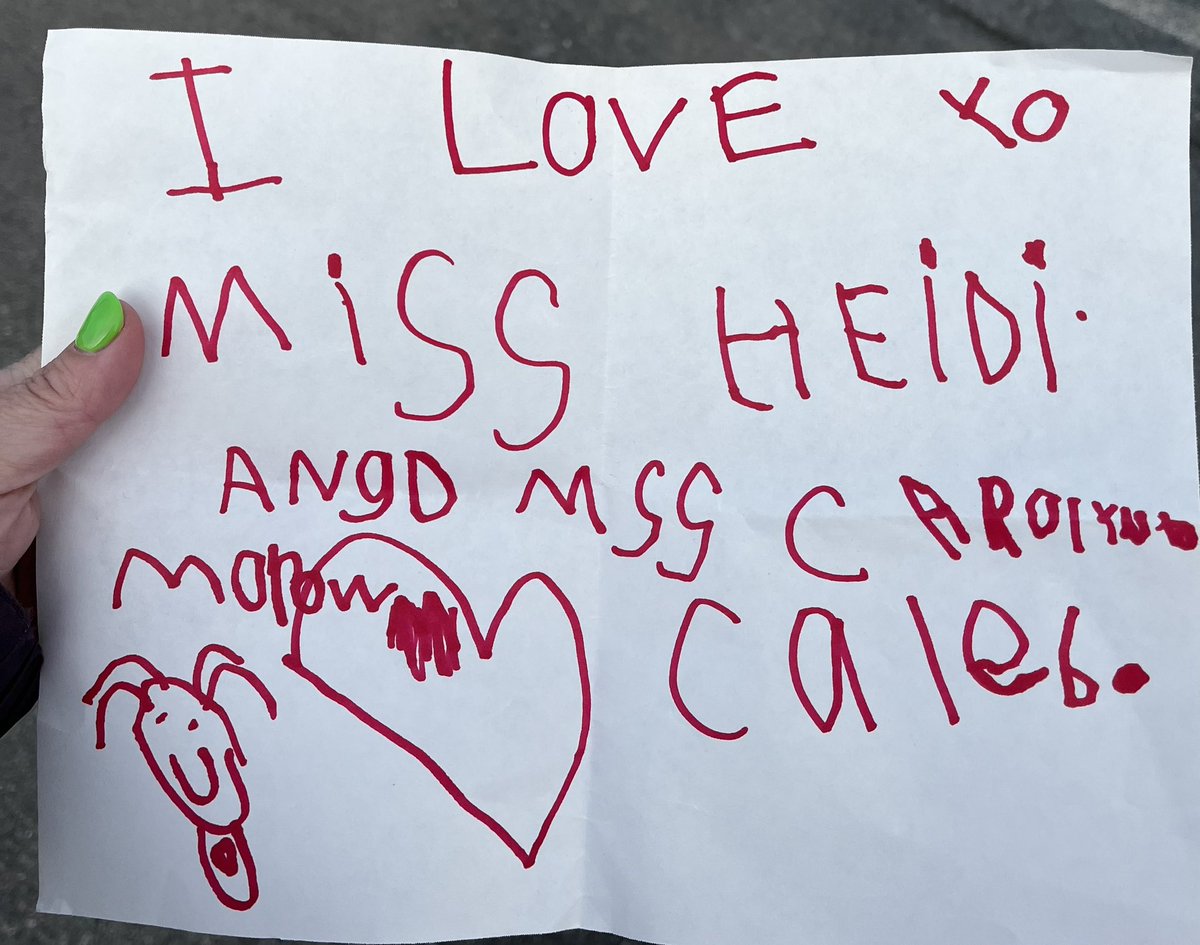 I LOVE YO
MiSS HEiDi.
ANgD MSS CAROlYN
Caleb.